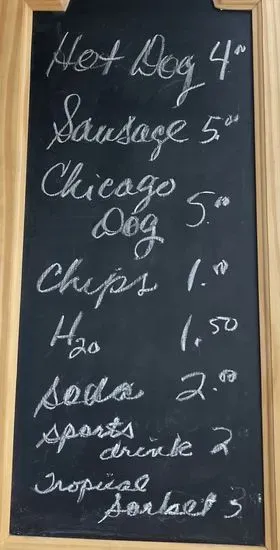 Hot Dog 4.00
Sausage 5.00
Chicago
Dog 5.00
Chips 1.00
H20 1.50
soda 2.00
sports
drink 2
Tropical
Sorbet 3